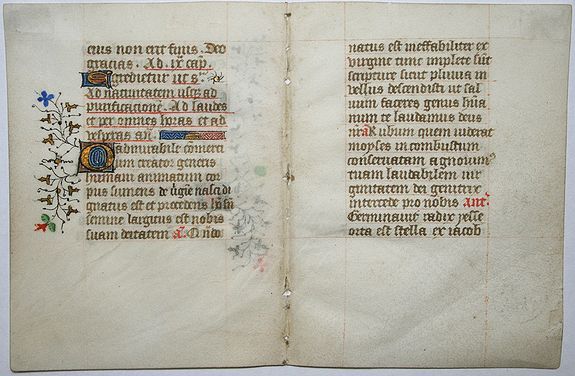 eius non erit finis. Deo
gracias. Ad .ix. cap.
Egredietur ut s.
Ad natiuitatem usq; ad
purificationem. Ad laudes
et per omnes horas et ad
vesperas añ
O admirabile comerci
um creator generis
humani animatum cor
pus sumens de uigine nasci di
gnatus est et procedens hõ sñ
semine largitus est nobis
suam deitatem a. Qñdo
natus est ineffabiliter ex
virgine tunc implete sũt
scripture sicut pluuia in
vellus descendisti ut sal
uum faceres genus hũa
num te laudamus deus
nr̃ a Rubum quem uiderat
moyses in combustum
conseruatam agnouimꝰ
tuam laudabilem uir
ginitatem dei genitrix
intercede pro nobis ant.
Germinauit radix yesse
orta est stella ex iacob